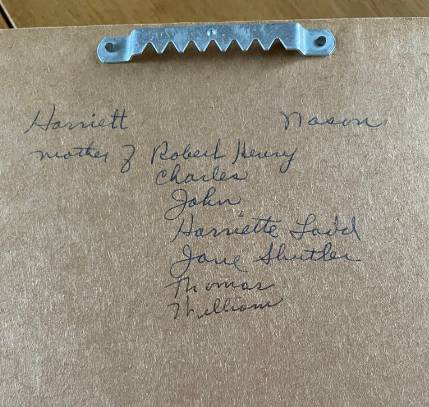 Harriett Nason
mother of Robert Henry
Charles
John
Harriette Ladd
Jane Shutler
Thomas
William